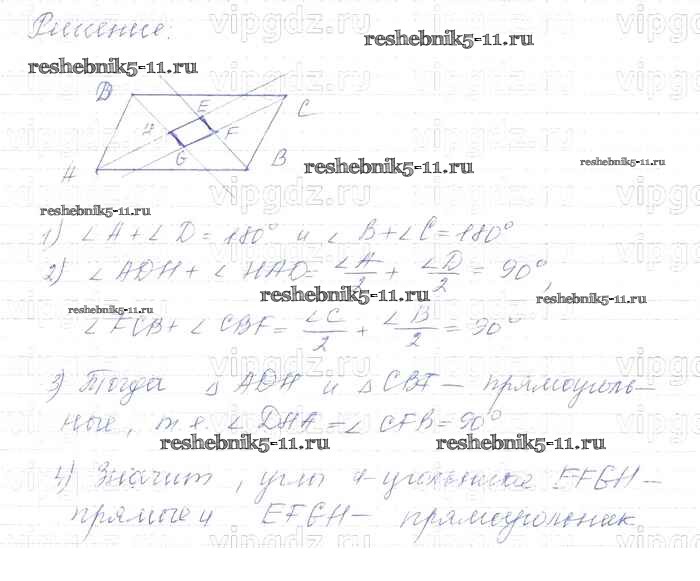 Решение:
reshebnik5-11.ru
reshebnik5-11.ru
D E C
H F
A G B
reshebnik5-11.ru
reshebnik5-11.ru
reshebnik5-11.ru
1) ∠A+∠D=180° и ∠B+∠C=180°
2) ∠ADH+∠HAD=∠A/2+∠D/2=90°,
reshebnik5-11.ru
reshebnik5-11.ru
reshebnik5-11.ru
∠FCB+∠CBF=∠C/2+∠B/2=90°
3) Тогда △ADH и △CBF – прямоуголь-
ные, т.е. ∠DHA=∠CFB=90°
reshebnik5-11.ru
reshebnik5-11.ru
4) Значит, углы 4-угольника EFGH –
прямые и EFGH – прямоугольник
vipgdz.ru